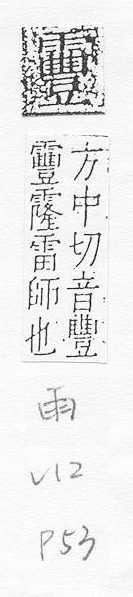 靊
方中切音豐
靊霳雷師也
雨
V12
P53